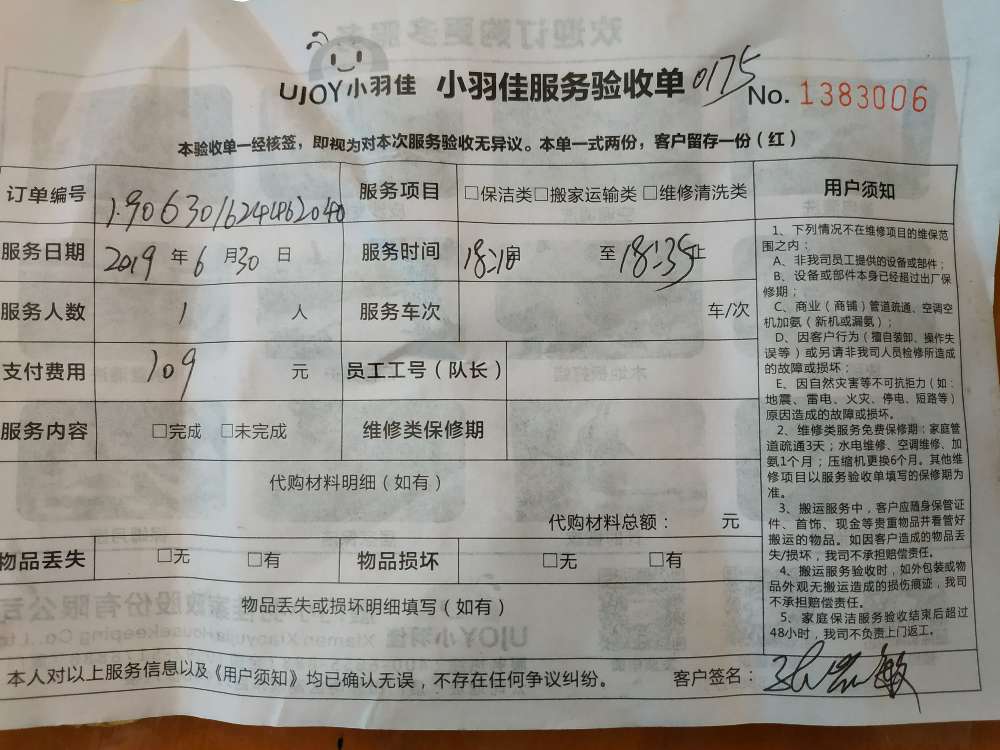 UJOY小羽佳 小羽佳服务验收单 0175 No. 1383006
本验收单一经核签，即视为对本次服务验收无异议。本单一式两份，客户留存一份（红）
订单编号 1906301624462040 服务项目 □保洁类□搬家运输类 □维修清洗类
服务日期 2019 年 6 月 30 日 服务时间 18:10 至 18:35 止
服务人数 1 人 服务车次 车/次
支付费用 109 元 员工工号（队长）
服务内容 □完成 □未完成 维修类保修期
代购材料明细（如有）
代购材料总额： 元
物品丢失 □无 □有 物品损坏 □无 □有
物品丢失或损坏明细填写（如有）
用户须知
1、下列情况不在维修项目的维保范
围之内：
A、非我司员工提供的设备或部件；
B、设备或部件本身已经超过出厂保
修期；
C、商业（商铺）管道疏通、空调空
机加氨（新机或漏氨）；
D、因客户行为（擅自装卸、操作失
误等）或另请非我司人员检修所造成
的故障或损坏；
E、因自然灾害等不可抗拒力（如：
地震、雷电、火灾、停电、短路等）
原因造成的故障或损坏。
2、维修类服务免费保修期：家庭管
道疏通3天；水电维修、空调维修、加
氨1个月；压缩机更换6个月。其他维
修项目以服务验收单填写的保修期为
准。
3、搬运服务中，客户应随身保管证
件、首饰、现金等贵重物品并看管好
搬运的物品。如因客户造成的物品丢
失/损坏，我司不承担赔偿责任。
4、搬运服务验收时，如外包装或物
品外观无搬运造成的损伤痕迹，我司
不承担赔偿责任。
5、家庭保洁服务验收结束后超过
48小时，我司不负责上门返工。
本人对以上服务信息以及《用户须知》均已确认无误，不存在任何争议纠纷。 客户签名：